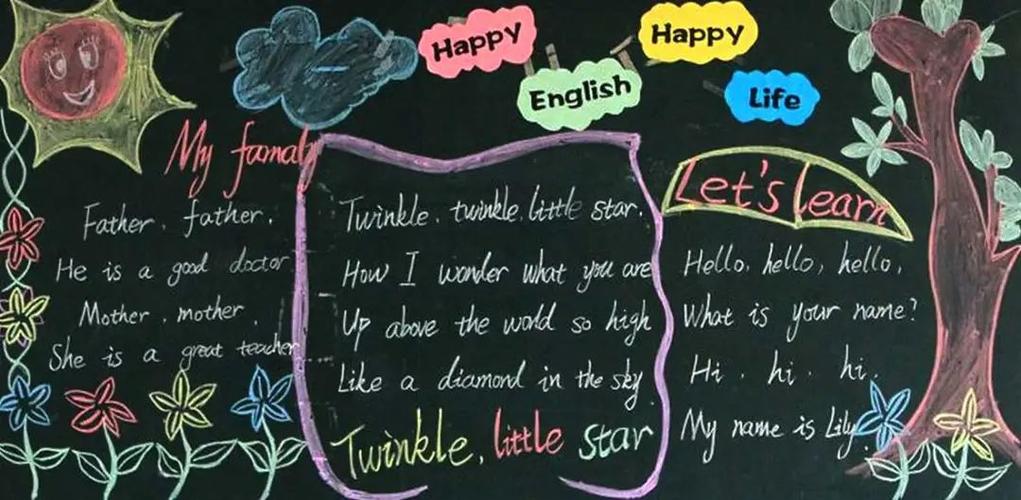 Happy
English
Happy
Life
My famaly
Father, father,
He is a good doctor
Mother, mother,
She is a great teacher
Twinkle, twinkle, little star.
How I wonder what you are
Up above the world so high
Like a diamond in the sky
Twinkle, little star
Let's learn
Hello, hello, hello,
What is your name?
Hi, hi, hi.
My name is Lily